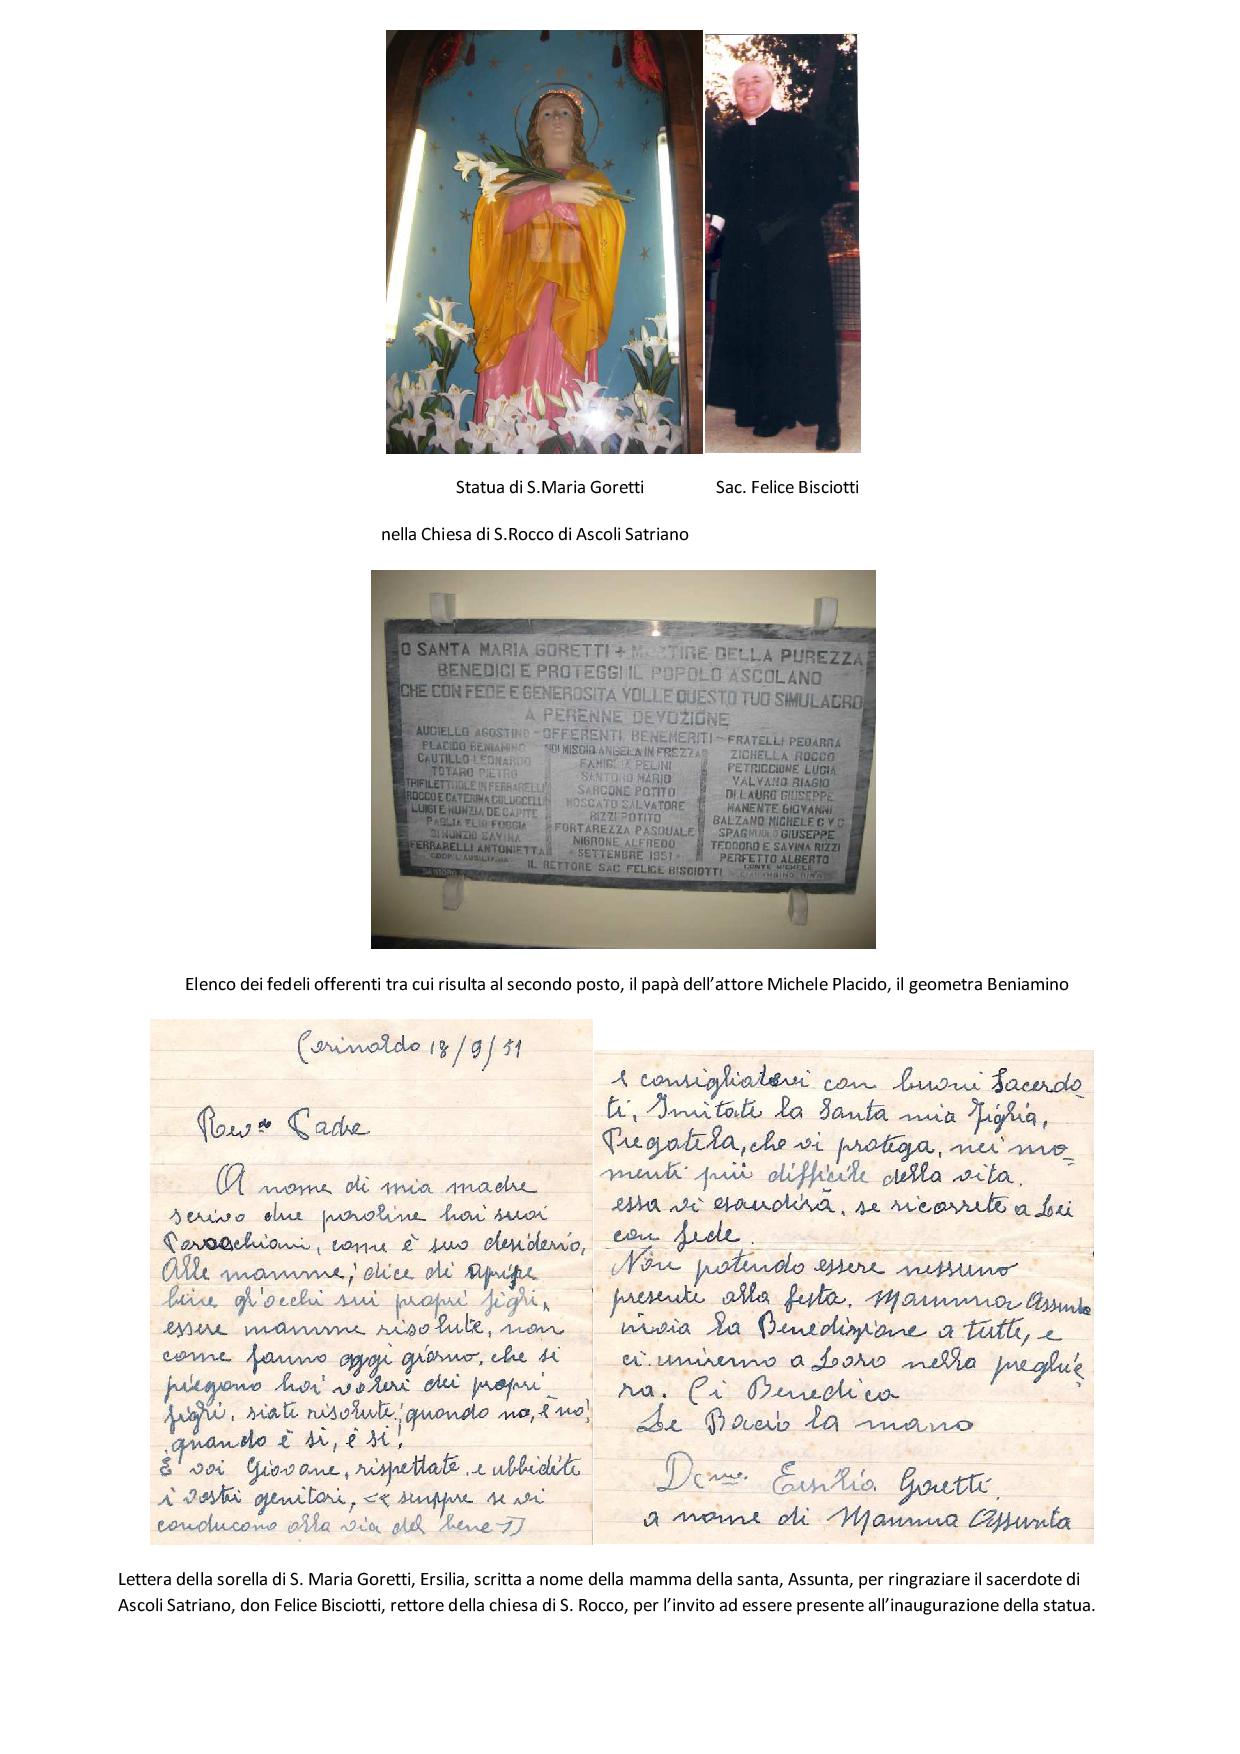 Statua di S.Maria Goretti Sac. Felice Bisciotti
nella Chiesa di S.Rocco di Ascoli Satriano
O SANTA MARIA GORETTI + MARTIRE DELLA PUREZZA
BENEDICI E PROTEGGI IL POPOLO ASCOLANO
CHE CON FEDE E GENEROSITA VOLLE QUESTO TUO SIMULACRO
A PERENNE DEVOZIONE
- OFFERENTI BENEMERITI -
AUCIELLO AGOSTINO
PLACIDO BENIAMINO
CAUTILLO LEONARDO
TOTARO PIETRO
IN FERRARELLI
ROCCO E CATERINA COLUCCELLI
LUIGI E NUNZIA DE CAPITE
PAGLIA ELIO FOGGIA
DI NUNZIO SAVINA
FERRARELLI ANTONIETTA
ANGELA IN FREZZA
FAMIGLIA PELINI
SANTORO MARIO
SARCONE POTITO
MOSCATO SALVATORE
RIZZI POTITO
FORTAREZZA PASQUALE
NIGRONE ALFREDO
- SETTEMBRE 1951 -
FRATELLI PEDARRA
ZICHELLA ROCCO
PETRICCIONE LUCIA
VALVANO BIAGIO
DI LAURO GIUSEPPE
MANENTE GIOVANNI
BALZANO MICHELE
SPAGNUOLO GIUSEPPE
TEODORO E SAVINA RIZZI
PERFETTO ALBERTO
CONTE MICHELE
IL RETTORE SAC FELICE BISCIOTTI
Elenco dei fedeli offerenti tra cui risulta al secondo posto, il papà dell'attore Michele Placido, il geometra Beniamino
Corinaldo 18/9/51
Rev.do Padre
A nome di mia madre
scrivo due paroline hai suoi
Parocchiani, come è suo desiderio,
Alle mamme, dice di aprire
bene gl'occhi sui propri figli,
essere mamme risolute, non
come fanno oggi giorno, che si
piegono hai voleri dei propri
figli, siate risolute, quando no, è no,
quando è si, è si!
E voi Giovane, rispettate e ubbidite
i vostri genitori, << senppre se vi
conducono alla via del bene >>
e consigliatevi con buoni Sacerdo
ti, Imitate la Santa mia figlia,
Pregatela, che vi protega, nei mo=
menti più difficile della vita.
essa vi esaudirà, se ricorrete a Lei
con fede.
Non potendo essere nessuno
presente alla festa. Mamma Assunta
invia la Benedizione a tutti, e
ci uniremo a Loro nella preghie
ra. Ci Benedica
Le Bacio la mano
Dc.ma Ersilia Goretti
a nome di Mamma Assunta
Lettera della sorella di S. Maria Goretti, Ersilia, scritta a nome della mamma della santa, Assunta, per ringraziare il sacerdote di
Ascoli Satriano, don Felice Bisciotti, rettore della chiesa di S. Rocco, per l'invito ad essere presente all'inaugurazione della statua.